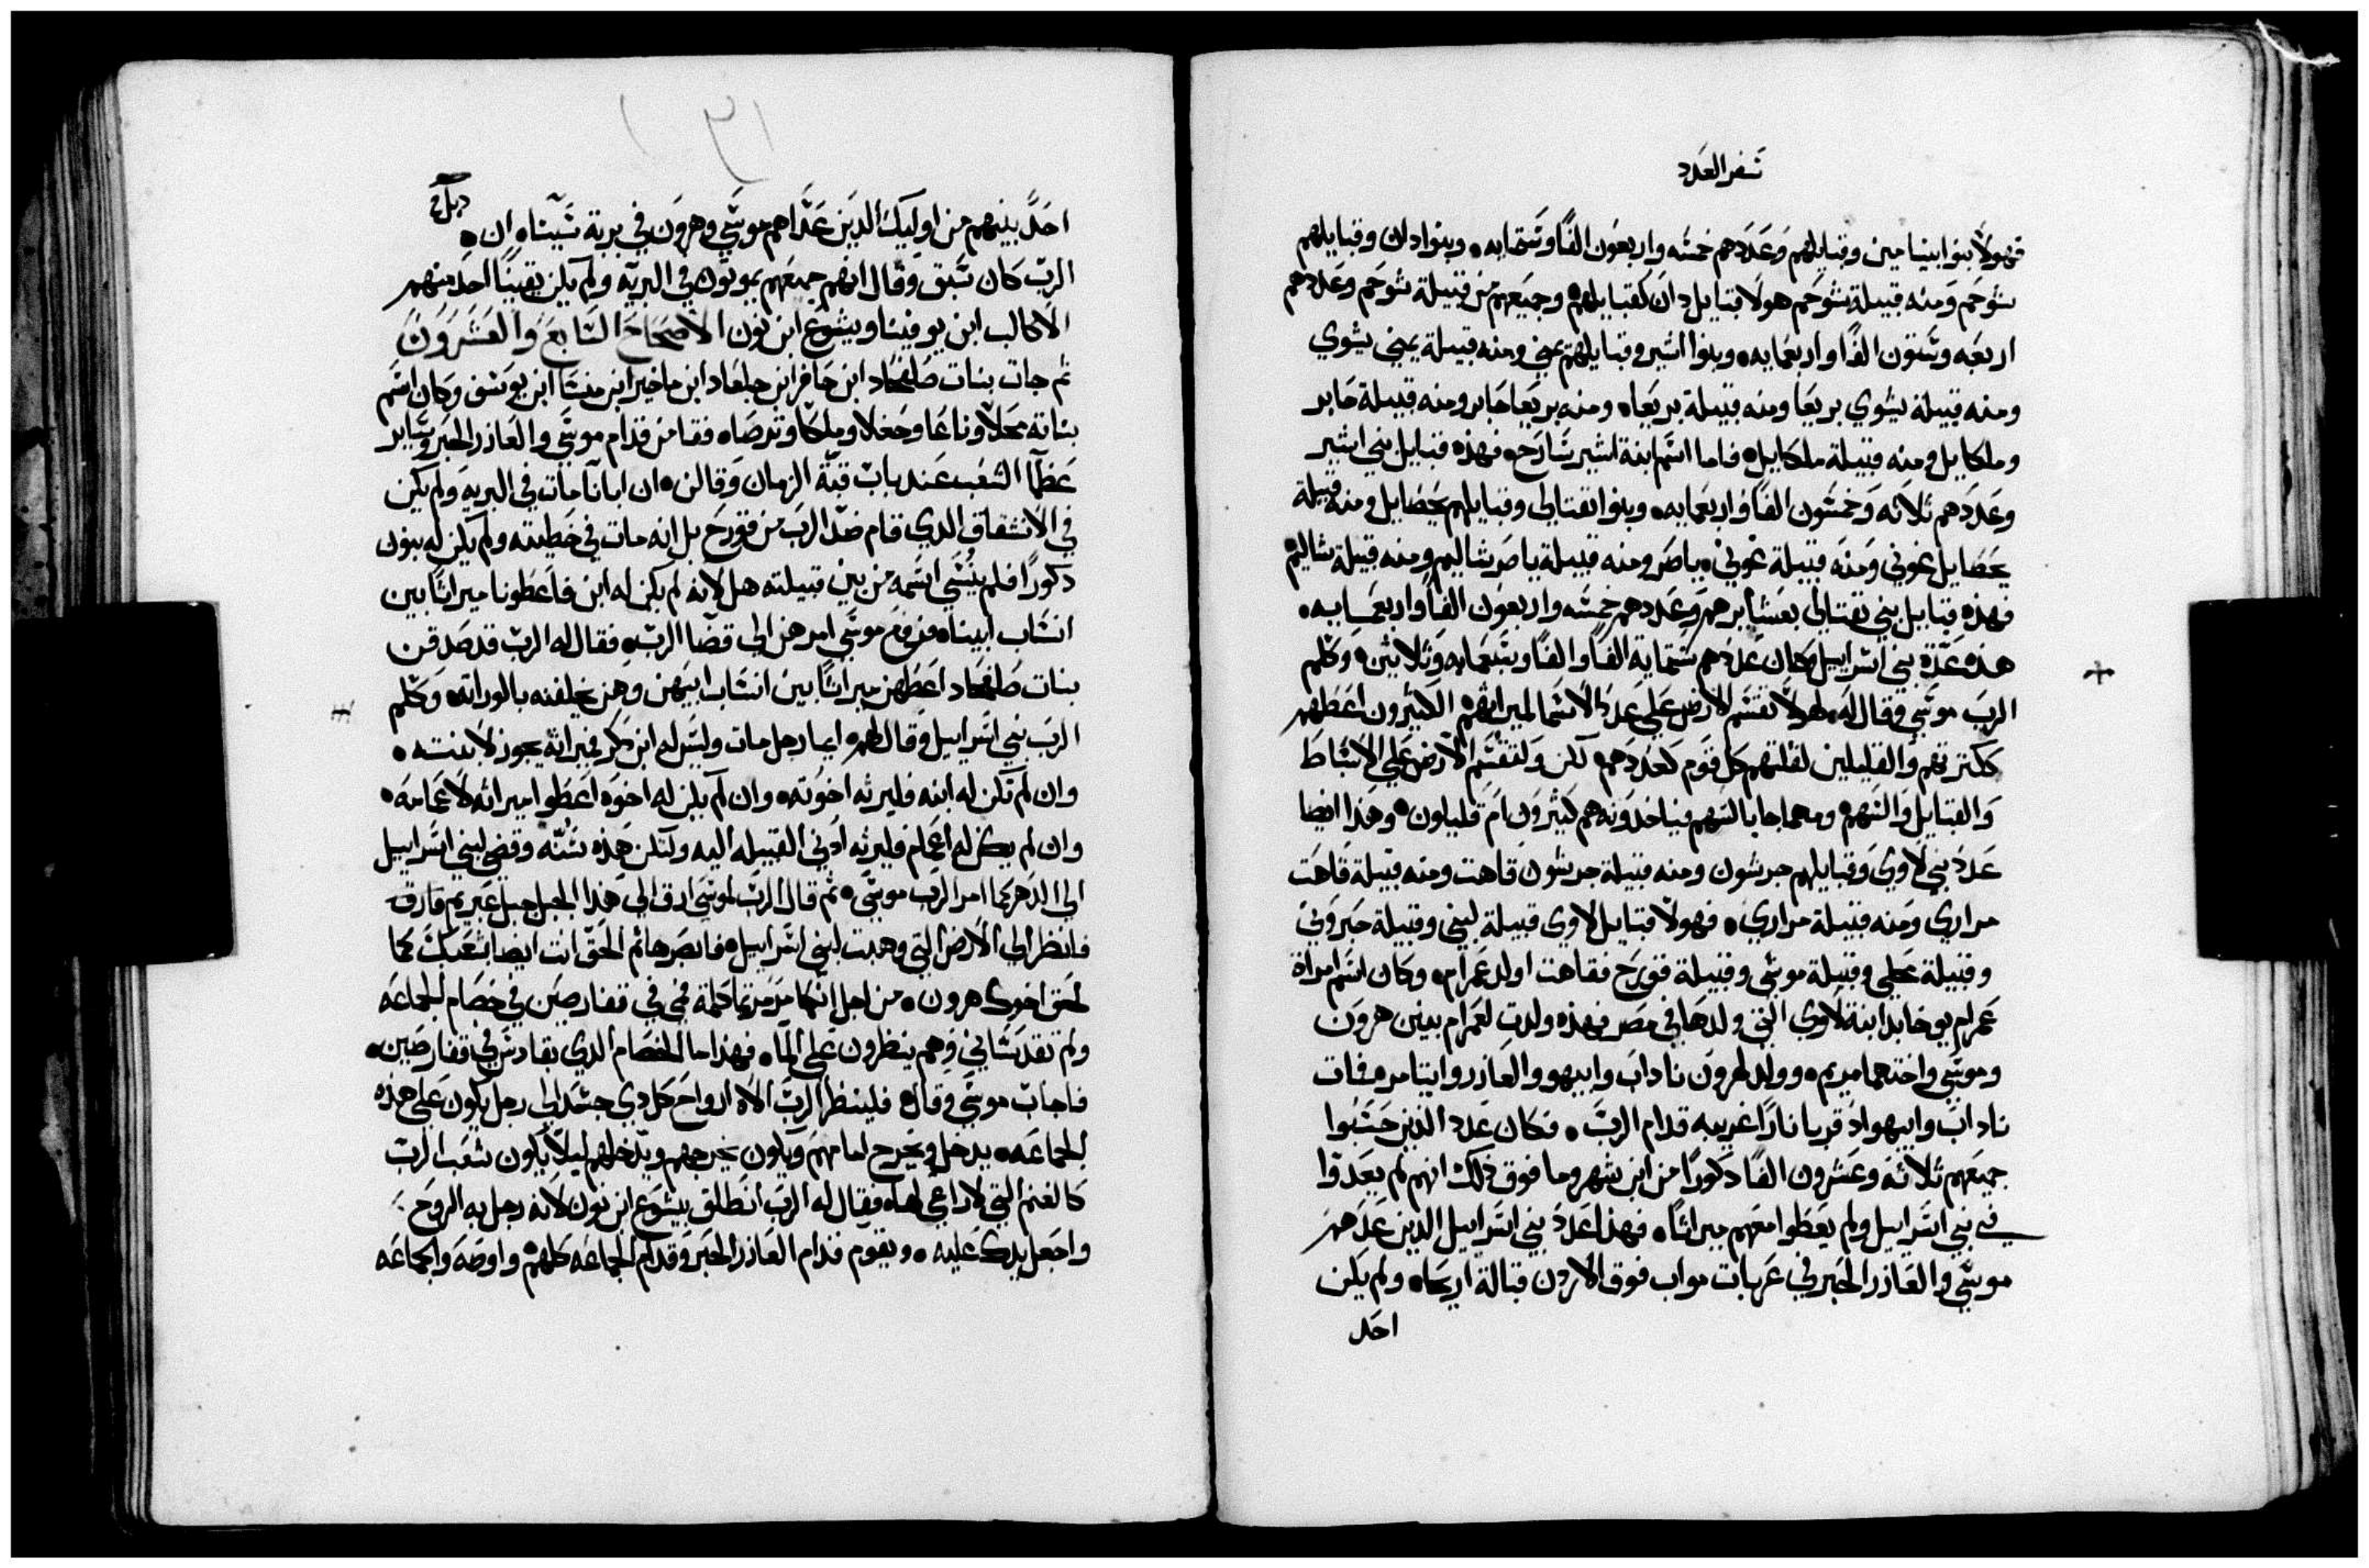 سفر العدد
فهولا بنوا بنيامين وقبايلهم وعددهم خمسه واربعون الفا وستمايه وبنوا دان وقبايلهم
شوحم ومنه قبيلة شوحم هولا قبايل دان كقبايلهم وجميعهم من قبيلة شوحم وعددهم
اربعه وستون الفا واربعمايه وبنوا اشير وقبايلهم يمني ومنه قبيلة يمني يشوي
ومنه قبيلة يشوي بريعا ومنه قبيلة بريعاه ومنه بريعا حابر ومنه قبيلة حابر
وملكاييل ومنه قبيلة ملكاييل فاما اسم ابنة اشير سارح فهذه قبايل بني اشير
وعددهم ثلاثه وخمسون الفا واربعمايه وبنوا نفتالي وقبايلهم يحصاييل ومنه قبيلة
يحصاييل غوني ومنه قبيلة غوني ياصر ومنه قبيلة ياصر شاليم ومنه قبيلة شاليم
فهذه قبايل بني نفتالي بعشايرهم وعددهم خمسه واربعون الفا واربعمايه
هذه عدة بني اسراييل وكان عددهم ستماية الفا والفا وسبعمايه وثلاثين وكلم
الرب موسي وقال له لهولا تقسم الارض علي عدد الاسما لميراثهم الكثيرون اعطهم
ككترتهم والقليلين لقلتهم كل قوم كعددهم لكن ولتقسم الارض علي الاسباط
والقبايل والسهم ومهما جا بالسهم فياخدونه هم كثيرون ام قليلون وهذا ايضا
عدد بني لاوي وقبايلهم جرشون ومنه قبيلة جرشون قاهت ومنه قبيلة قاهت
مراري ومنه قبيلة مراري فهولا قبايل لاوي قبيلة لبني وقبيلة حبروني
وقبيلة محلي وقبيلة موشي وقبيلة قورح فقاهت اولد عمرام وكان اسم امراة
عمرام يوخابد ابنة لاوي التي ولدها في مصر فهذه ولدت لعمرام بنين هرون
وموسي واختهما مريم وولد لهرون ناداب وابيهو والعازر وايتامر فمات
ناداب وابيهو اد قربا نارا غريبه قدام الرب فكان عدد الذين حسبوا
جميعهم ثلاثه وعشرون الفا دكورا من ابن شهر وما فوق ذلك انهم لم يعدوا
في بني اسراييل ولم يعطوا معهم ميراثا فهذا عدد بني اسراييل الدين عدهم
موسي والعازر الحبر في عربات مواب فوق الاردن قبالة اريحاه ولم يكن
احد
احد بينهم من اوليك الدين عداهم موسي وهرون في برية سيناه ان
الرب كان سبق وقال انهم جميعهم يموتون في البريه ولم يكن بقي احد منهم
الا كالب ابن يوفينا ويشوع ابن نون الاصحاح السابع والعشرون
ثم جات بنات صلفحاد ابن حافر ابن جلعاد ابن ماخير ابن منسا ابن يوسف وكان اسم
بناته محلا وناعا وحغلا وملكا وترصاه فقامن قدام موسي والعازر الحبر وساير
عظما الشعب عند باب قبة الزمان وقالن ان ابانا مات في البريه ولم يكن
في الانشقاق الدي قام ضد الرب من قورح بل انه مات في خطيته ولم يكن له بنون
دكورا فلم ينسي اسمه من بين قبيلته هل لانه لم يكن له ابن فاعطونا ميراثا بين
انساب ابيناه فرفع موسي امرهن الي قضا الرب فقال له الرب قد صدقن
بنات صلفحاد اعطهن ميراثا بين انساب ابيهن وهن يخلفنه بالوراثه وكلم
الرب بني اسراييل وقال لهم ايما رجل مات وليس له ابن دكر فميراثه يحوز لابنته
وان لم تكن له ابنه فليرثه اخوته وان لم يكن له اخوه اعطوا ميراثه لاعمامه
وان لم يكن له اعمام فليرثه ادني القبيله اليه ولتكن هذه سنه وقضي لبني اسراييل
الي الدهر كما امر الرب موسي ثم قال الرب لموسي ارق الي هذا الجبل جبل عبريم فارق
فانظر الي الارض التي وهبت لبني اسراييل فابصرها ثم الحق انت ايضا بشعبك كما
لحق اخوك هرون من اجل انكما مرمرتما كلمة فمي في قفار صين في خصام الجماعه
ولم تقدساني وهم ينظرون علي الما فهذا ما الخصام الدي بقادس في قفار صين
فاجاب موسي وقال فلينظر الرب الاه ارواح كل دي جسد الي رجل يكون علي هذه
الجماعه يدخل ويخرج امامهم ويكون يخرجهم ويدخلهم ليلا يكون شعب الرب
كالغنم التي لا راعي لها فقال له الرب انطلق بيشوع ابن نون لانه رجل به الروح
واجعل يدك عليه ويقوم قدام العازر الحبر وقدام الجماعه كلهم واوصه والجماعه